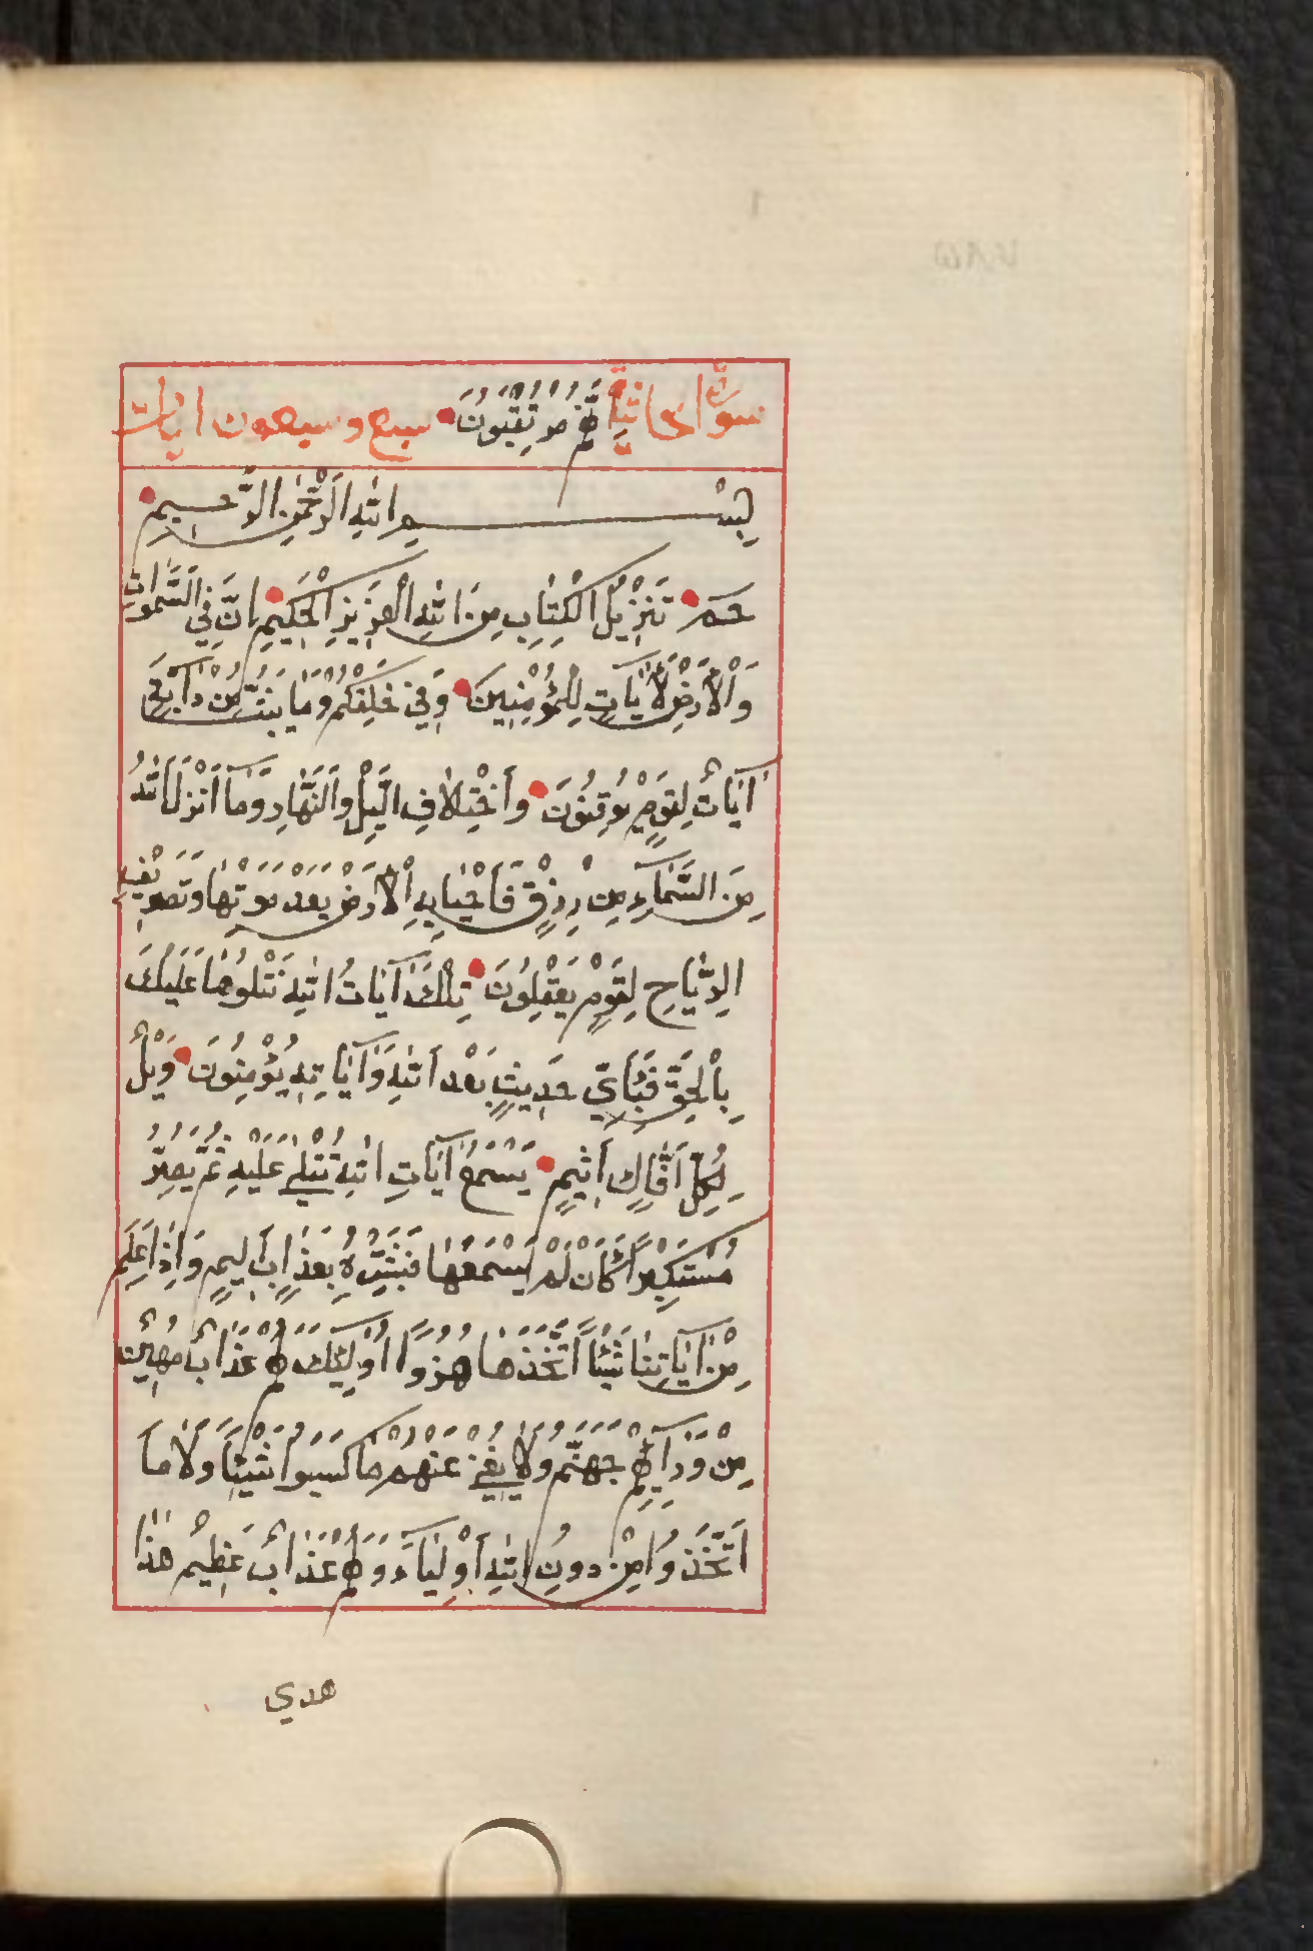 سورة الجاثية هُمْ مُرْتَقِبُونَ سبع وسبعون ايات
بِسْمِ اللّٰهِ الرَّحْمٰنِ الرَّحِيمِ
حٓمٓ تَنْزِيلُ الْكِتَابِ مِنَ اللّٰهِ الْعَزِيزِ الْحَكِيمِ اِنَّ فِي السَّمٰوَاتِ
وَالْاَرْضِ لَاٰيَاتٍ لِلْمُؤْمِنِينَ وَفِي خَلْقِكُمْ وَمَا يَبُثُّ مِنْ دَابَّةٍ
اٰيَاتٌ لِقَوْمٍ يُوقِنُونَ وَاَخْتِلَافِ الَّيْلِ وَالنَّهَارِ وَمَا اَنْزَلَ اللّٰهُ
مِنَ السَّمَاءِ مِنْ رِزْقٍ فَاَحْيَا بِهِ الْاَرْضَ بَعْدَ مَوْتِهَا وَتَصْرِيفِ
الرِّيَاحِ لِقَوْمٍ يَعْقِلُونَ تِلْكَ اٰيَاتُ اللّٰهِ نَتْلُوهَا عَلَيْكَ
بِالْحَقِّ فَبِاَيِّ حَدِيثٍ بَعْدَ اللّٰهِ وَاٰيَاتِهِ يُؤْمِنُونَ وَيْلٌ
لِكُلِّ اَفَّاكٍ اَثِيمٍ يَسْمَعُ اٰيَاتِ اللّٰهِ تُتْلٰى عَلَيْهِ ثُمَّ يُصِرُّ
مُسْتَكْبِرًا كَاَنْ لَمْ يَسْمَعْهَا فَبَشِّرْهُ بِعَذَابٍ اَلِيمٍ وَاِذَا عَلِمَ
مِنْ اٰيَاتِنَا شَيْئًا اتَّخَذَهَا هُزُوًا اُولٰئِكَ لَهُمْ عَذَابٌ مُهِينٌ
مِنْ وَرَائِهِمْ جَهَنَّمُ وَلَا يُغْنِي عَنْهُمْ مَا كَسَبُوا شَيْئًا وَلَا مَا
اَتَّخَذُوا مِنْ دُونِ اللّٰهِ اَوْلِيَاءَ وَلَهُمْ عَذَابٌ عَظِيمٌ هٰذَا
هدي